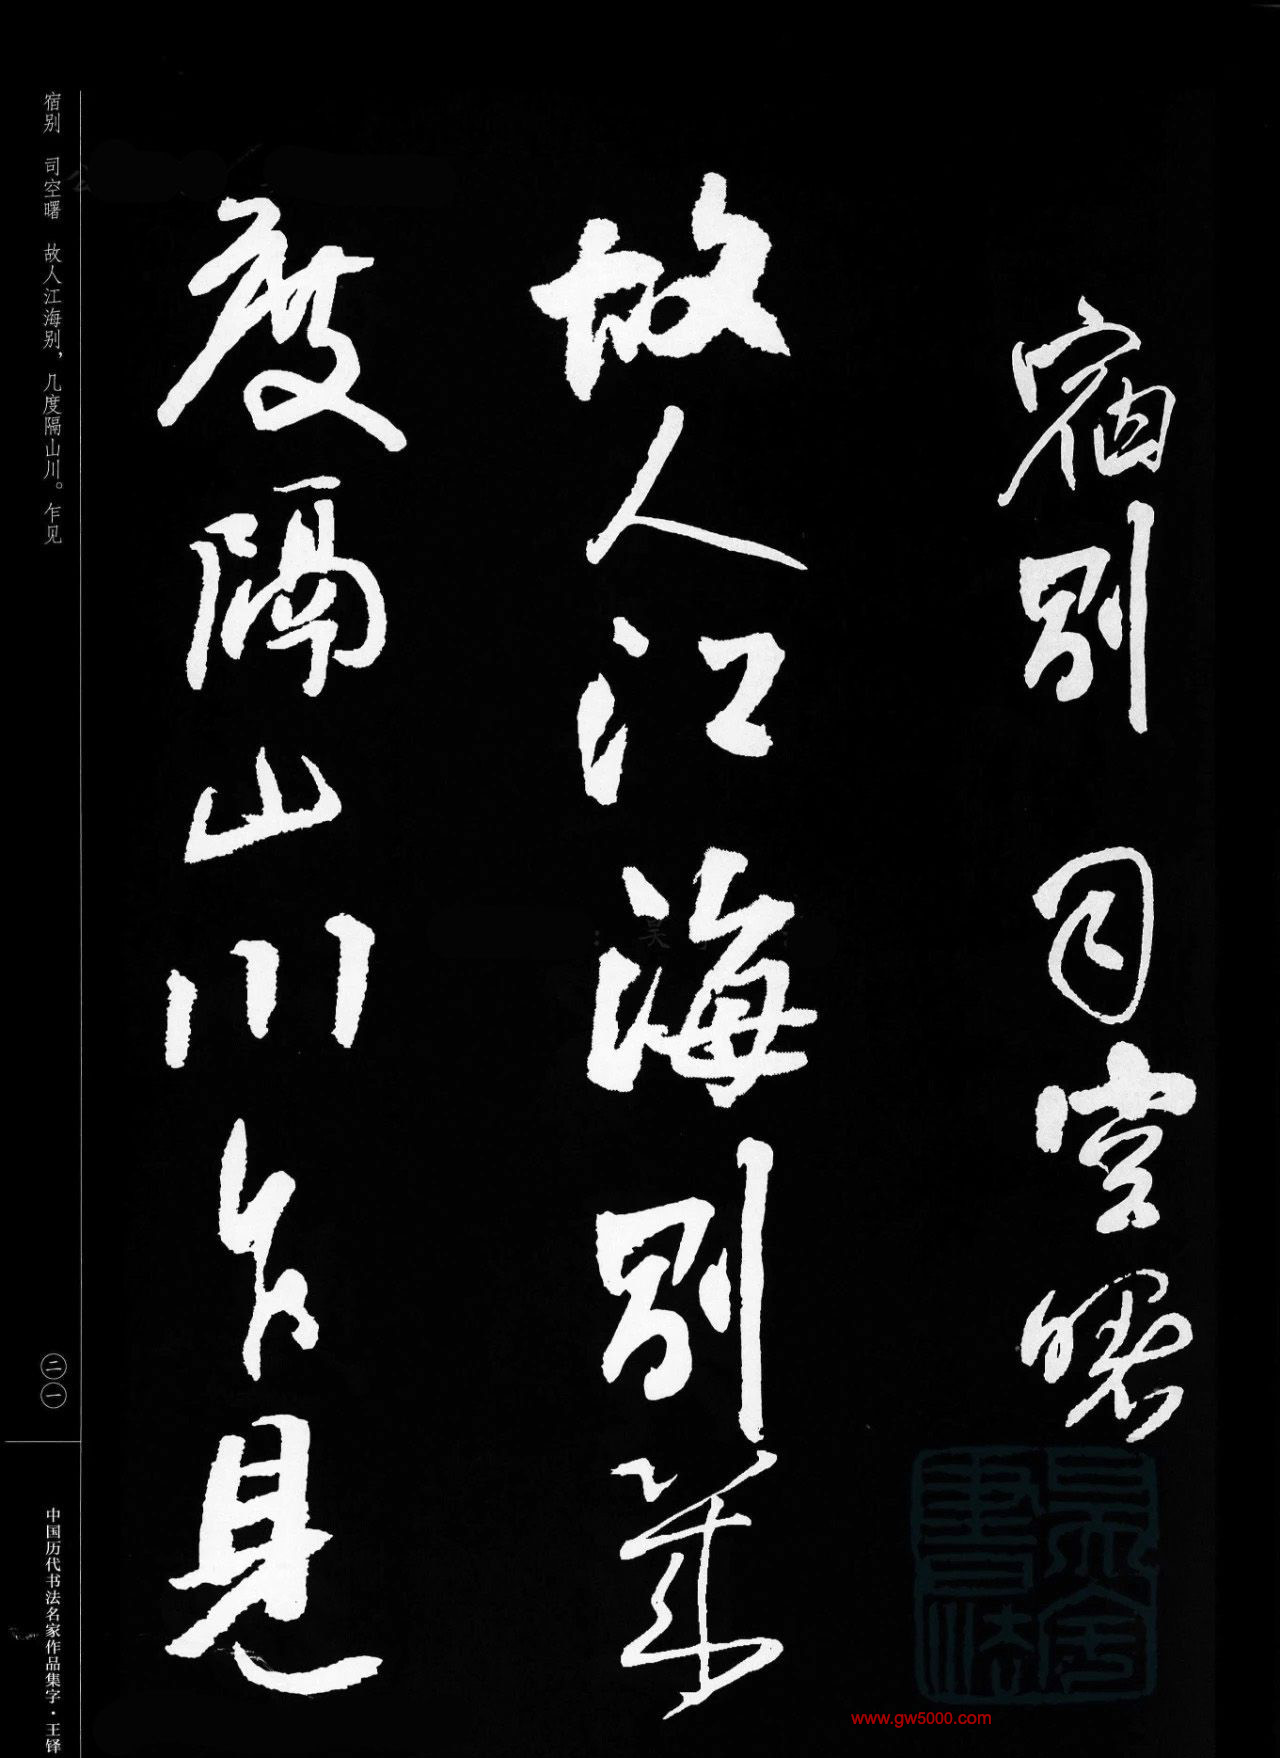 宿別 司空曙
故人江海別幾
度隔山川乍見
宿别 司空曙 故人江海别，几度隔山川。乍见
二一
中国历代书法名家作品集字·王铎
www.gw5000.com